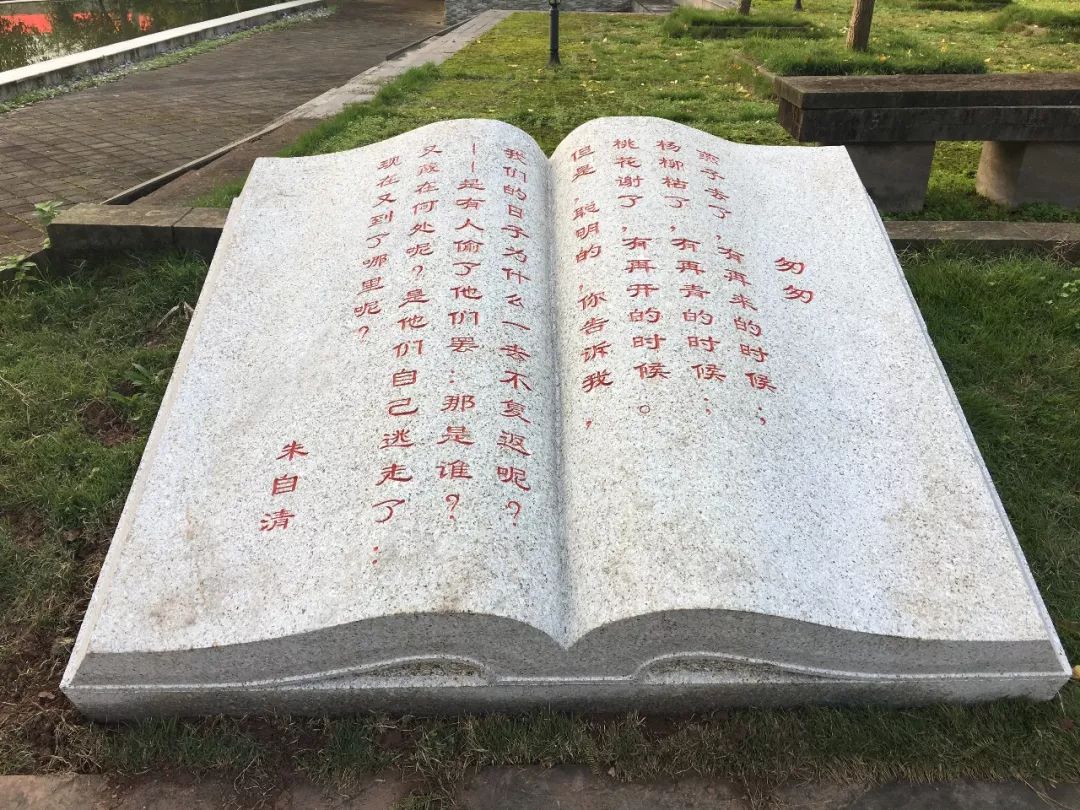 匆匆
燕子去了，有再来的时候；
杨柳枯了，有再青的时候；
桃花谢了，有再开的时候。
但是，聪明的，你告诉我，
我们的日子为什么一去不复返呢？
——是有人偷了他们罢：那是谁？
又藏在何处呢？是他们自己逃走了：
现在又到了哪里呢？
朱自清